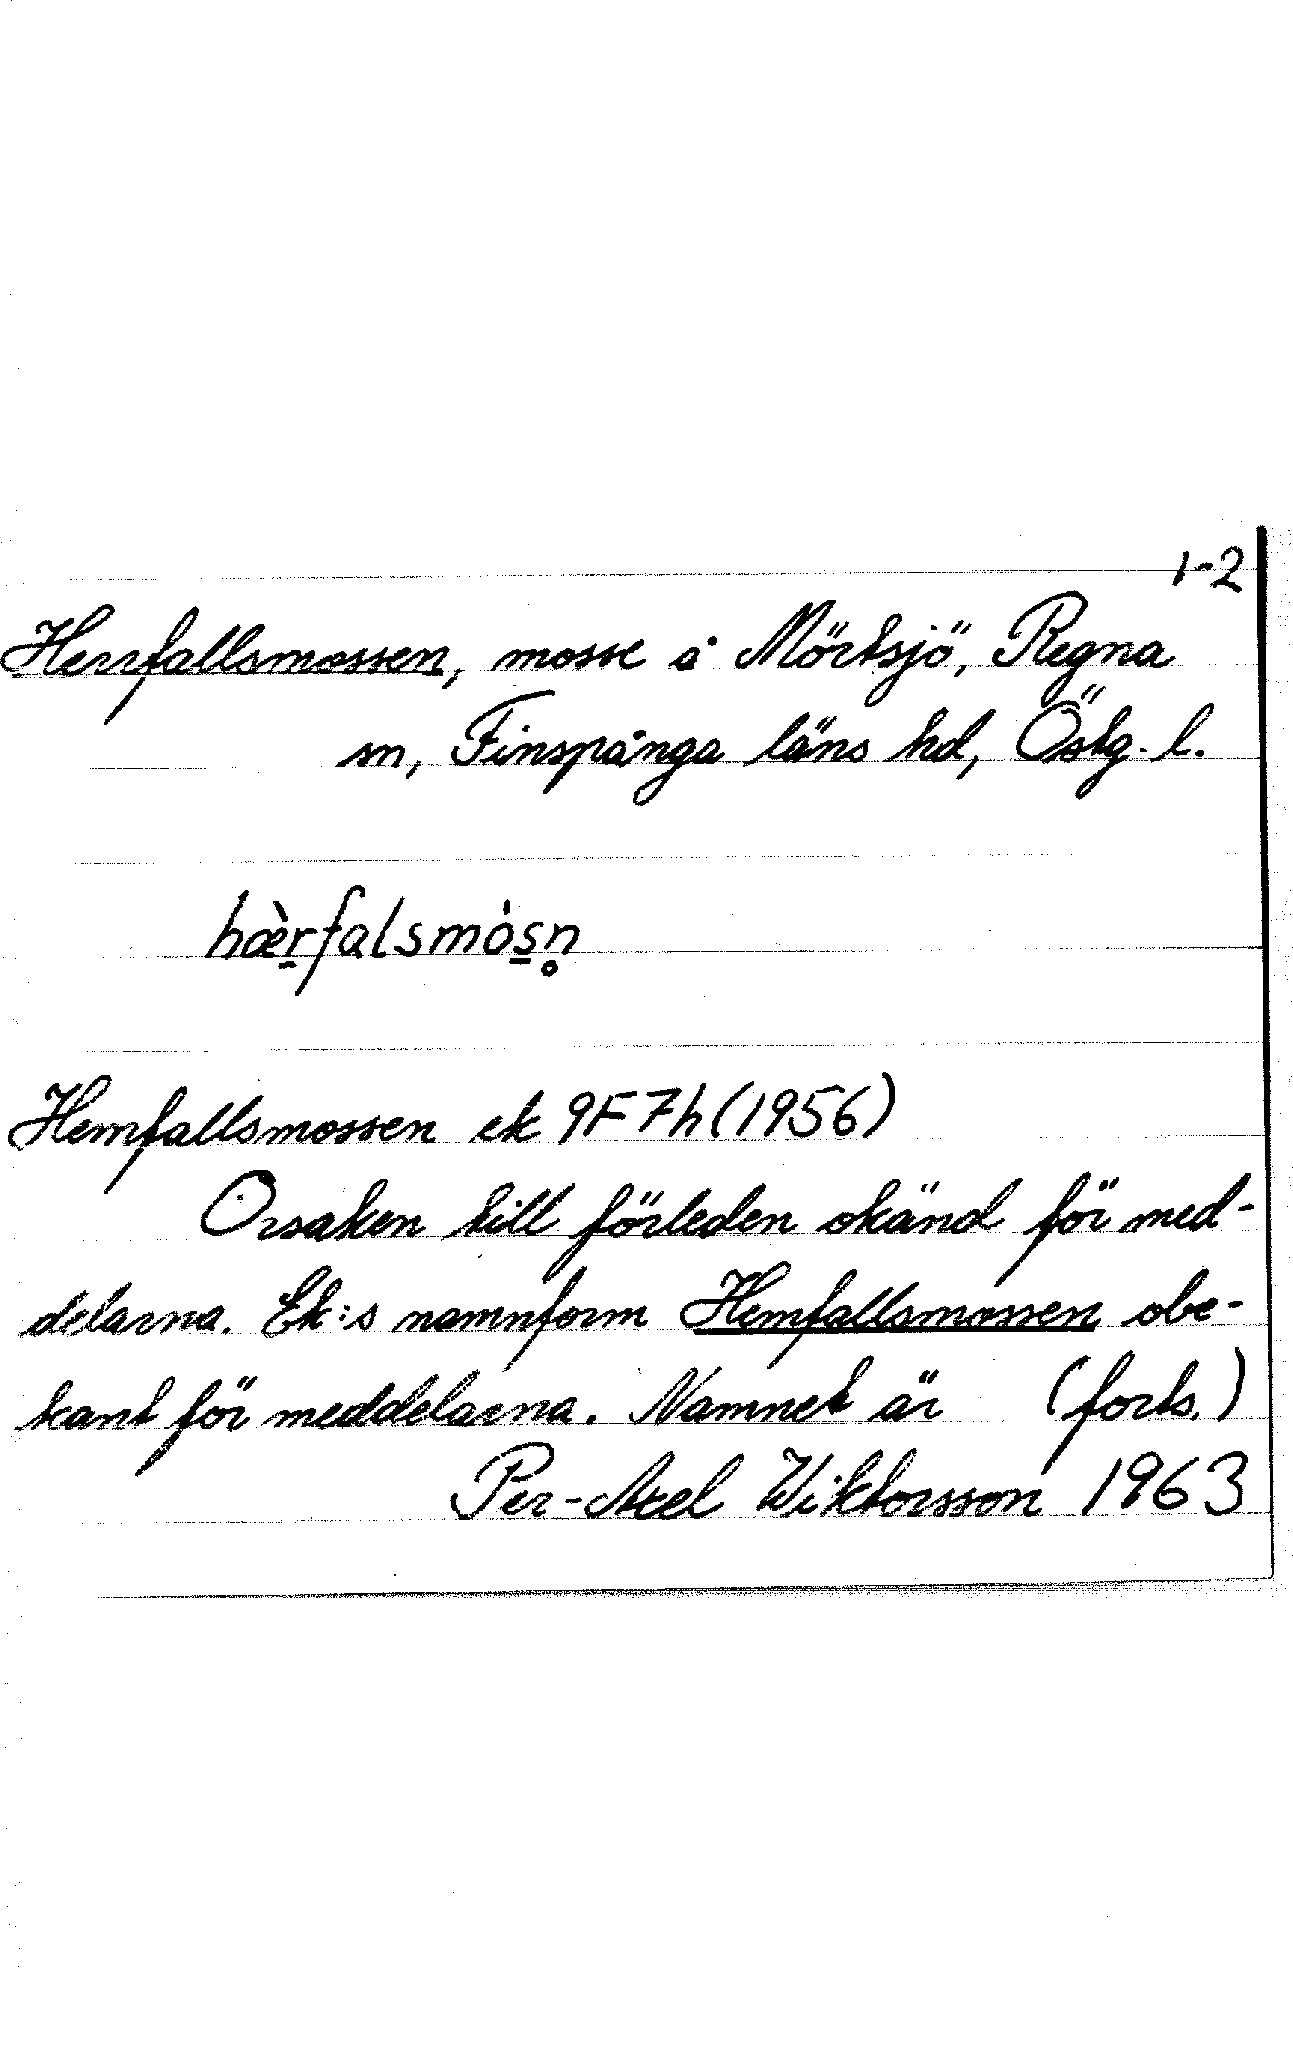 1-2
Herrfallsmossen, mosse å Mörtsjö, Regna
sn, Finspånga läns hd, Östg. l.
hæ̀r̲falsmòs̲n̥
Hemfallsmossen ek 9F7h (1956)
Orsaken till förleden okänd för med-
delarna. Ek:s namnform Hemfallsmossen obe-
kant för meddelarna. Namnet är (forts.)
Per-Axel Wiktorsson 1963